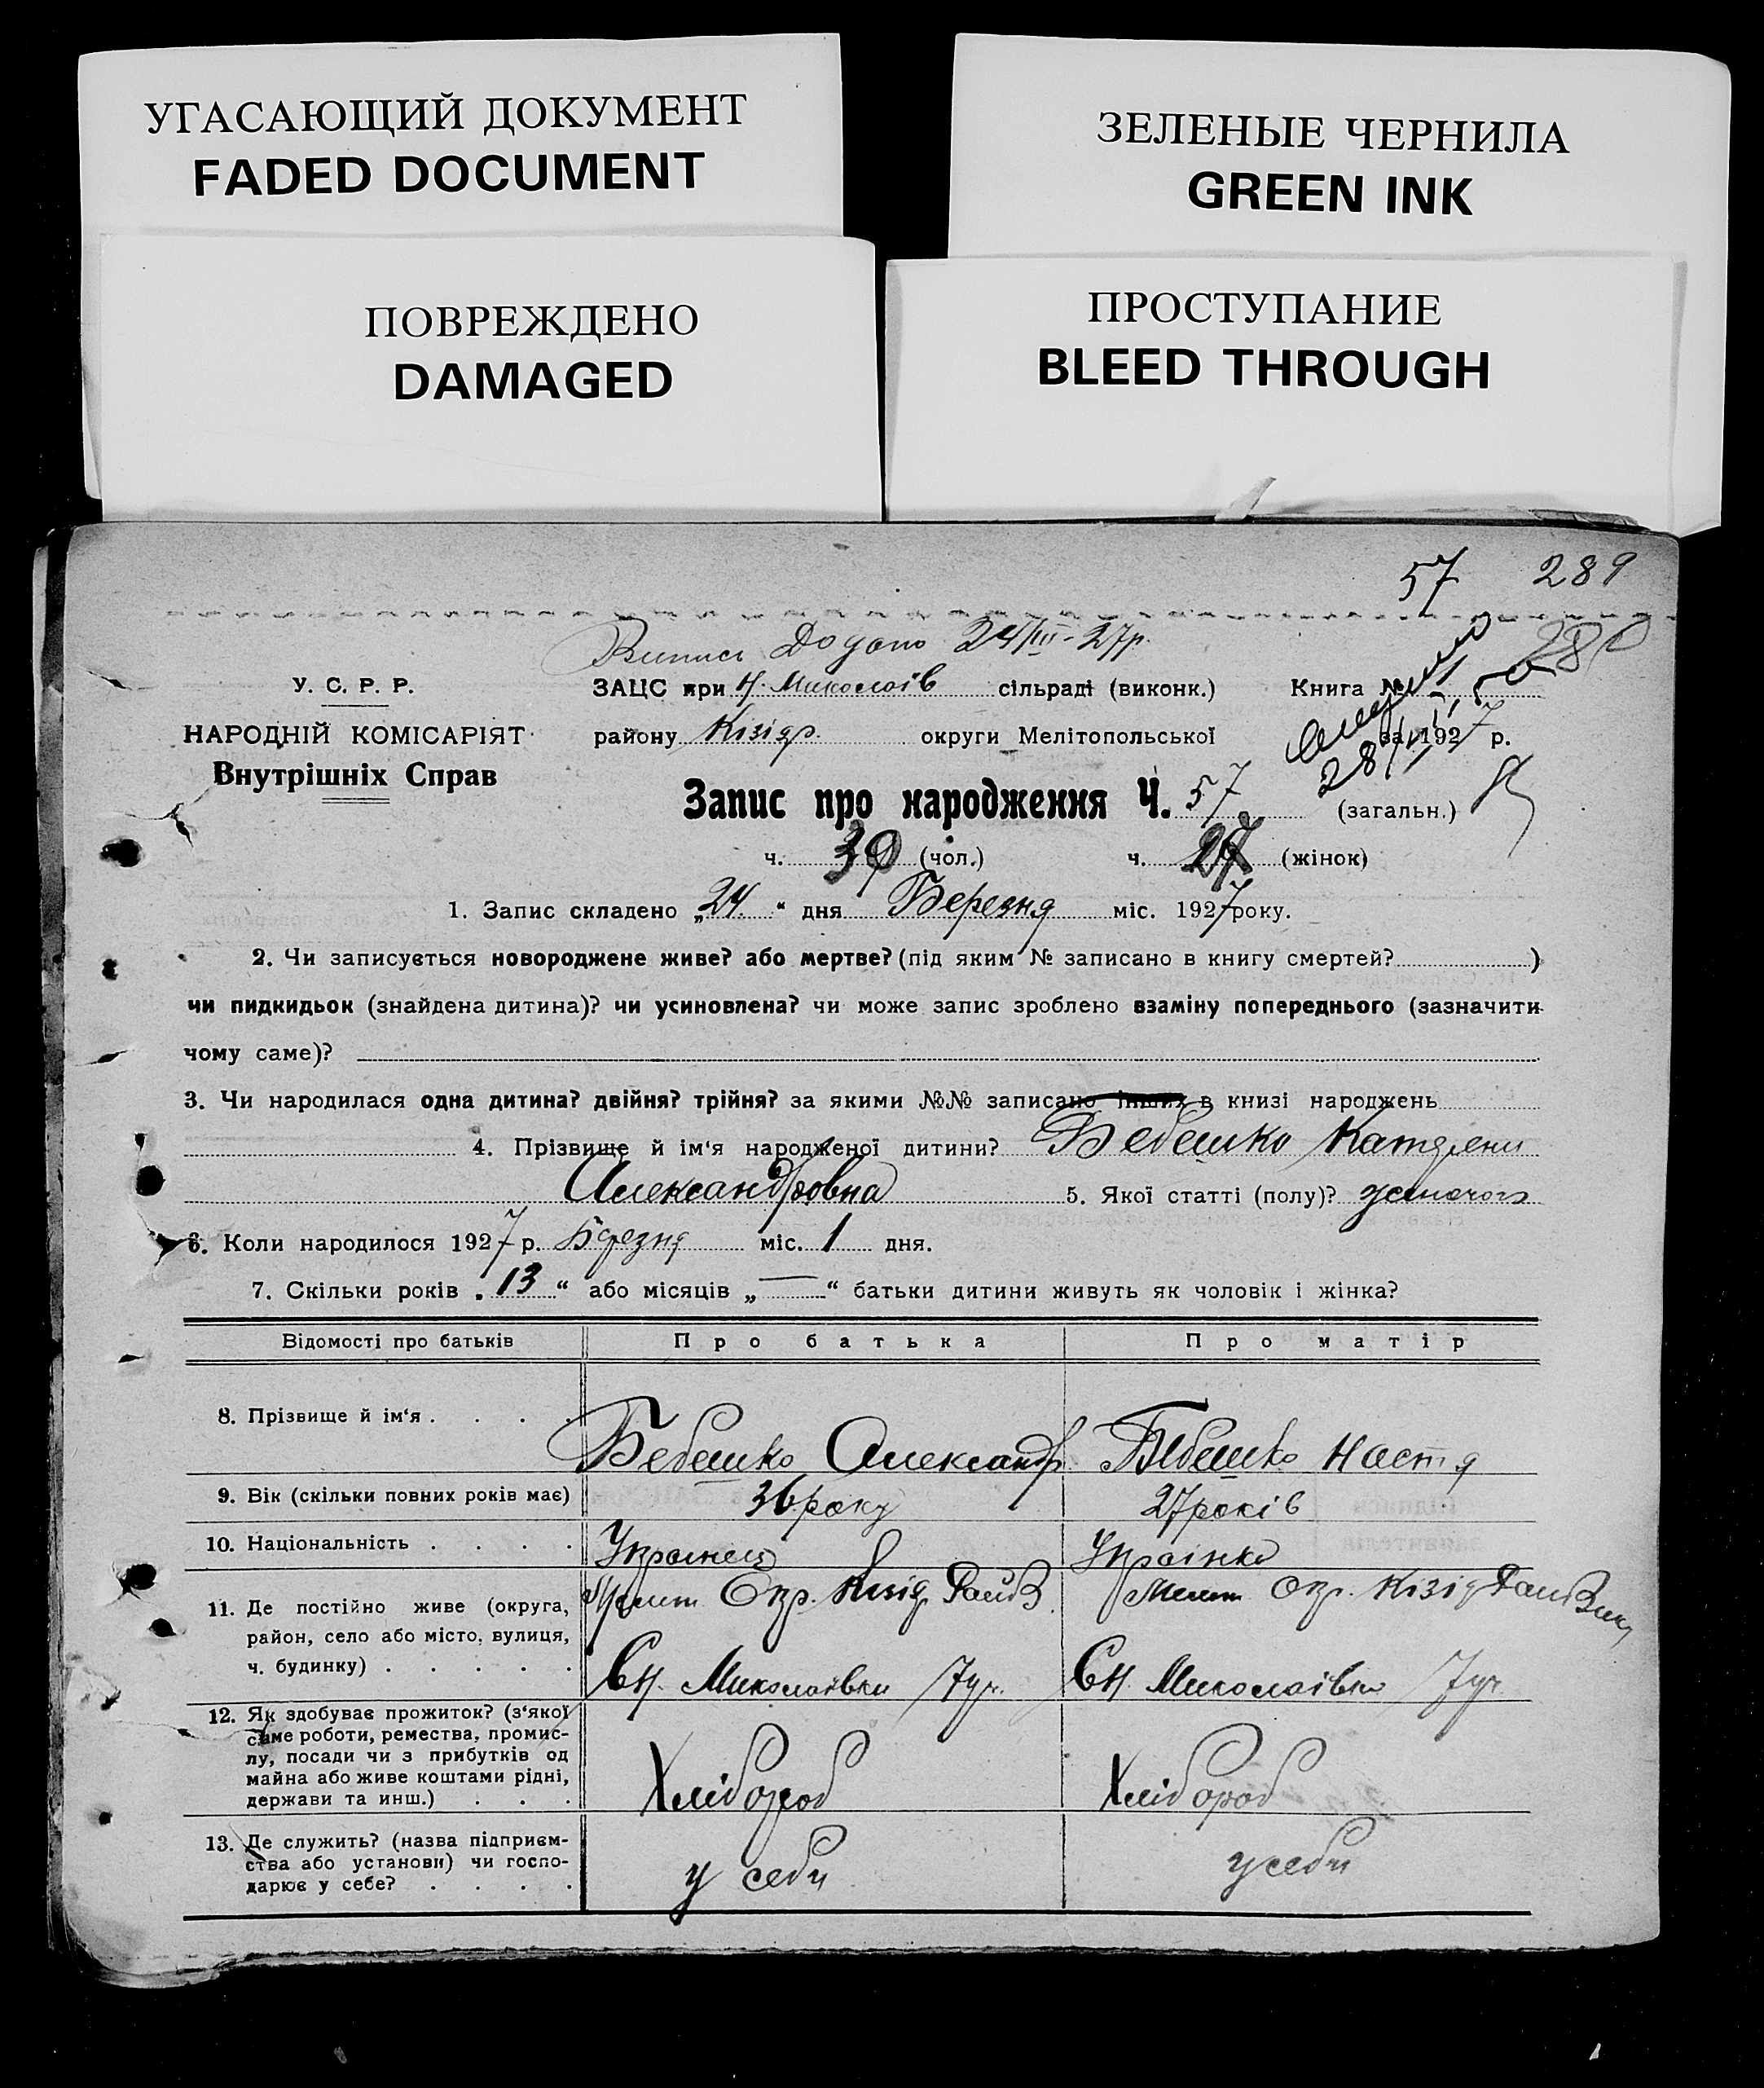 УГАСАЮЩИЙ ДОКУМЕНТ
FADED DOCUMENT
ЗЕЛЕНЫЕ ЧЕРНИЛА
GREEN INK
ПОВРЕЖДЕНО
DAMAGED
ПРОСТУПАНИЕ
BLEED THROUGH
57 289
Випись 24/III-27р.
У. С. Р. Р.
НАРОДНІЙ КОМІСАРІЯТ
Внутрішніх Справ
ЗАЦС при Н. Миколаїв сільраді (виконк.) Книга №
району Кізіяр. округи Мелітопольської за 1927 р.
28/
Запис про народження Ч. 57 (загальн.)
ч. 30 (чол.) ч. 27 (жінок)
1. Запис складено „24“ дня Березня міс. 1927 року.
2. Чи записується новороджене живе? або мертве? (під яким № записано в книгу смертей? )
чи пидкидьок (знайдена дитина)? чи усиновлена? чи може запис зроблено взаміну попереднього (зазначити
чому саме)?
3. Чи народилася одна дитина? двійня? трійня? за якими №№ записано інших в книзі народжень
4. Прізвище й ім‘я народженої дитини? Бебешко
Александровна 5. Якої статті (полу)?
6. Коли народилося 1927 р. Березня міс. 1 дня.
7. Скільки років „13“ або місяців „—“ батьки дитини живуть як чоловік і жінка?
Відомості про батьків Про батька Про матір
8. Прізвище й ім‘я . . . . Бебешко Александр. Бебешко Настя
9. Вік (скільки повних років має) 36 року 27 років
10. Національність . . . . Українец Українка
11. Де постійно живе (округа,
район, село або місто, вулиця,
ч. будинку) . . . . .
Мелит Окр. Кізіяр Рай В
С Н. Миколаівки 7 уч.
Мелит Окр. Кізіяр Рай
С Н. Миколаівки 7 уч.
12. Як здобуває прожиток? (з‘якої
саме роботи, ремества, промис-
лу, посади чи з прибутків од
майна або живе коштами рідні,
держави та инш.) . . .
Хлібороб Хлібороб
13. Де служить? (назва підприєм-
ства або установи) чи госпо-
дарює у себе? . . . .
у себи у себи